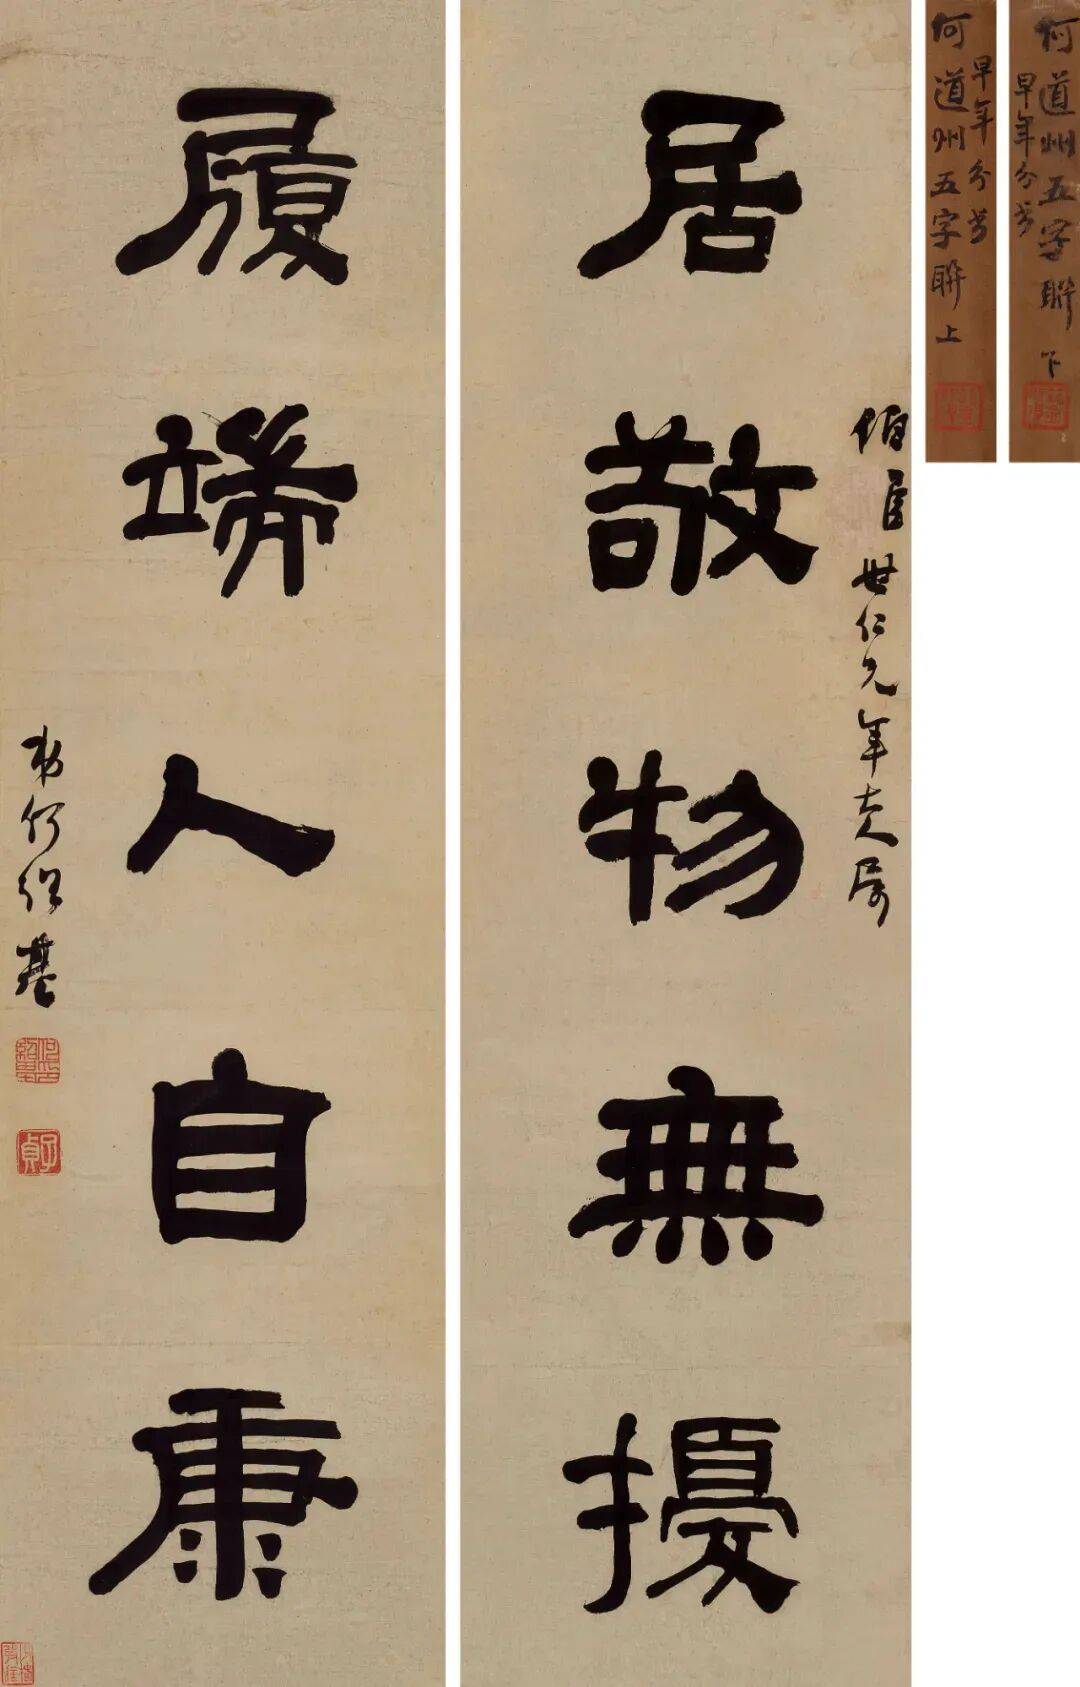 居敬物無擾
伯臣世仁兄年大人屬
履端人自康
弟何紹基
子貞
何道州五字聯上
早年分書
何道州五字聯下
早年分書